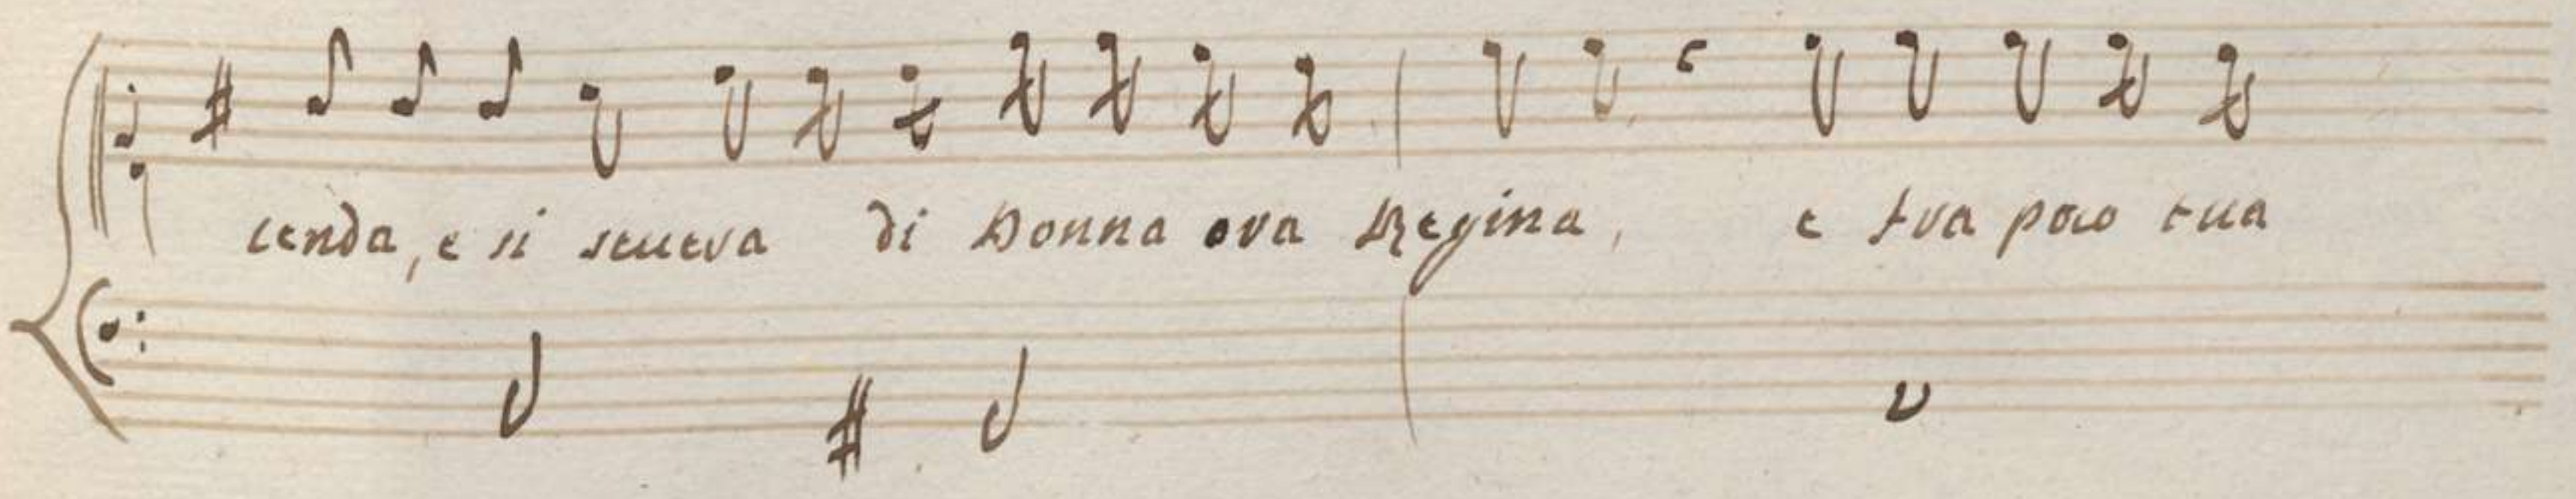 cenda, e si scueva di Donna ora Regina, e tra poco cua